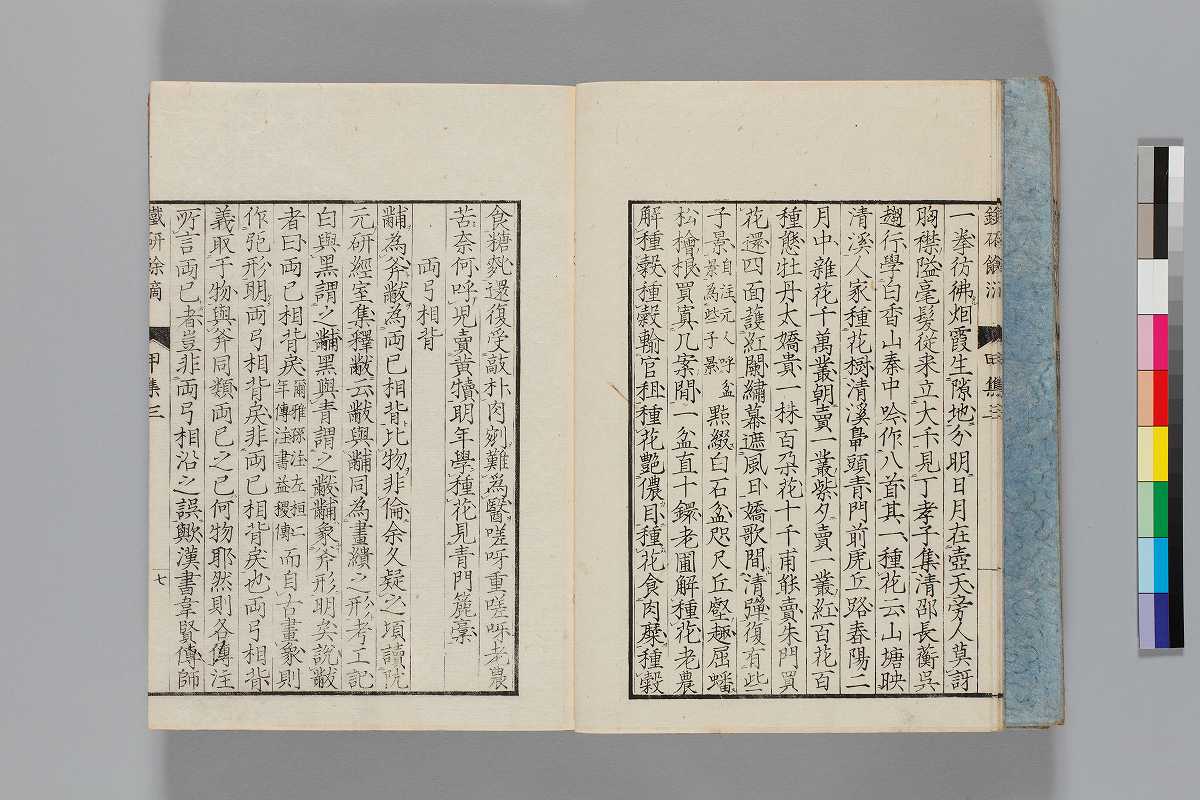 一拳彷彿炯霞生隙地分明日月在壺天旁人莫訝
胸襟隘毫髮從来立大千見丁孝子集清邵長蘅呉
趨行學白香山秦中吟作八首其一種花云山塘映
清溪人家種花樹清溪鼻頭青門前虎丘路春陽二
月中雜花千萬叢朝賣一叢紫夕賣一叢紅百花百
種態牡丹太嬌貴一株百朶花十千甫能賣朱門買
花還四面護紅闌繡幕遮風日嬌歌間清彈復有些
子景自注元人呼盆
景為些子景
點綴白石盆咫尺丘壑趣屈蟠
松檜根買寘几案間一盆直十鐶老圃解種花老農
解種穀種穀輸官租種花艶儂目種花食肉糜種穀
食糖籺還復受敲朴肉剜難為醫嗟呀重嗟呀老農
苦奈何呼児賣黄犢明年學種花見青門簏藁
両弓相背
黼為斧黻為両己相背比物非倫余久疑之頃讀阮
元研經室集釋黻云黻與黼同為畫繢之形考工記
白與黒謂之黼黒與青謂之黻黼象斧形明矣説黻
者曰両己相背矣爾雅孫注左桓二
年傳注書益稷傳
而自古畫象則
作弫形明両弓相背矣非両己相背矣也両弓相背
義取于物與斧同類両己之己何物耶然則各傳注
所言両己者豈非両弓相沿之誤歟漢書韋賢傳師
鐵研餘滴
甲集三
七